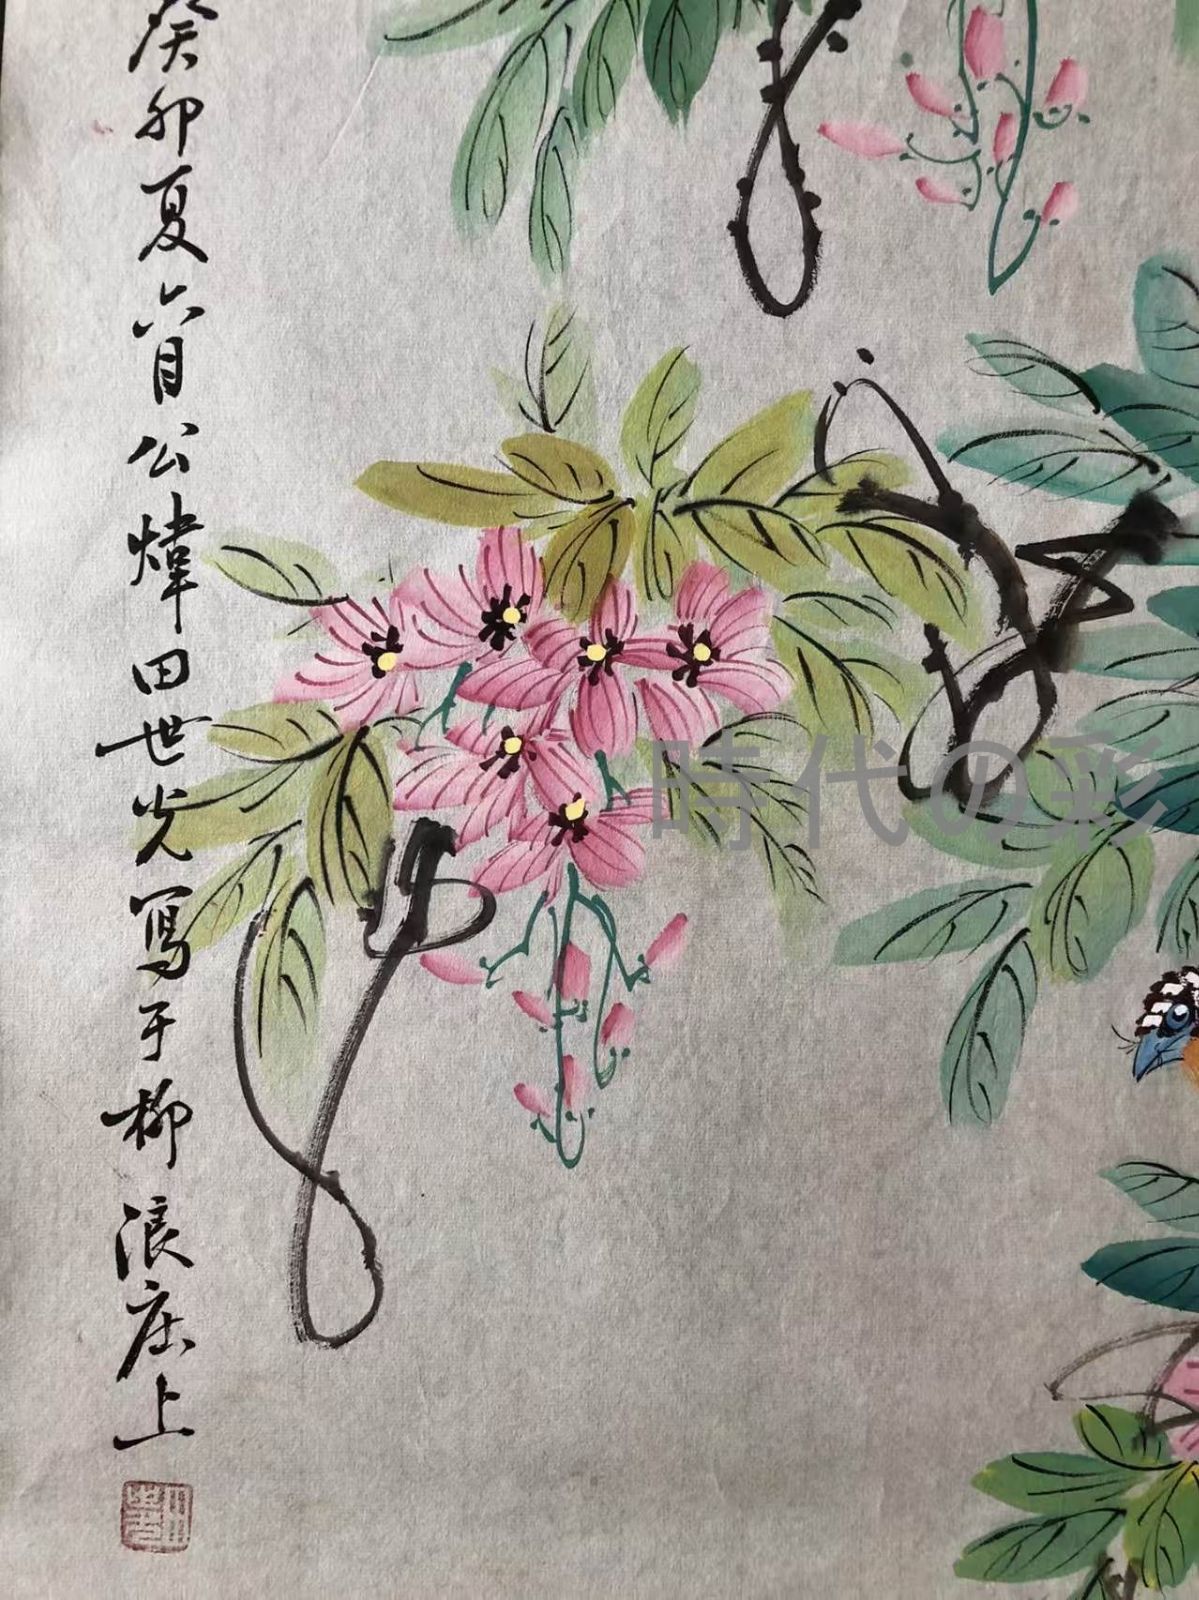 癸卯夏六月公煒田世光寫于柳浪庄上
時代の彩